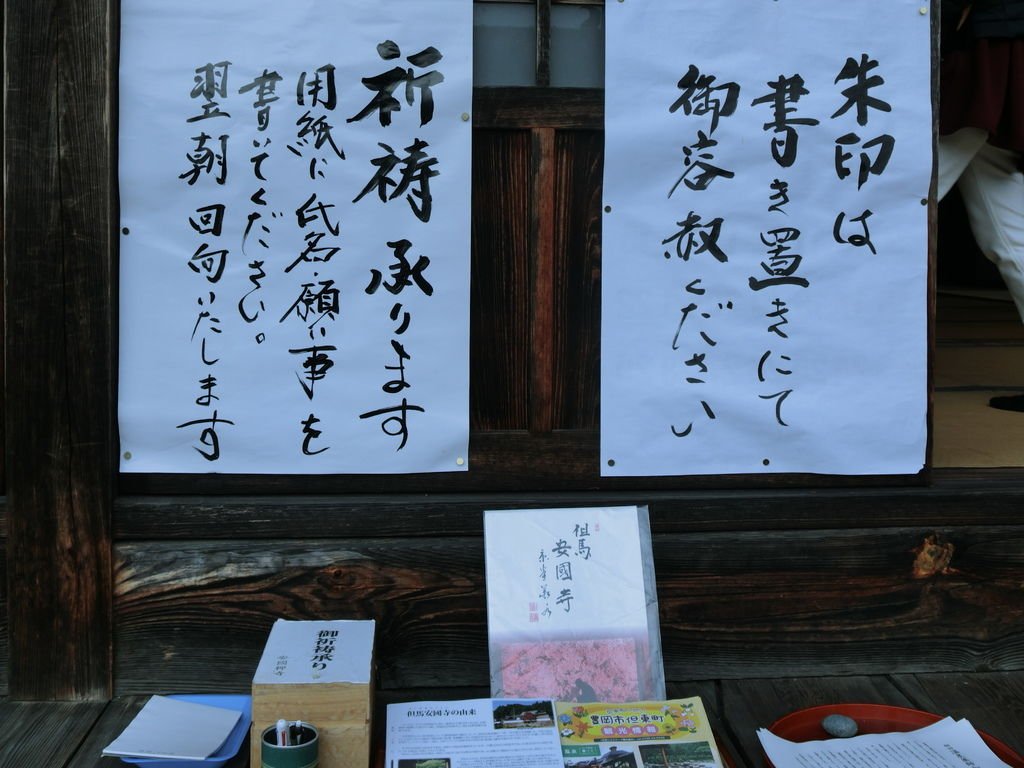 朱印は
書き置きにて
御容赦ください
祈祷承ります
用紙に氏名・願い事を
書いてください。
翌朝回向いたします
但馬
安國寺
御祈祷承り
安國禅寺
但馬安國寺の由来
豊岡市但東町
観光情報